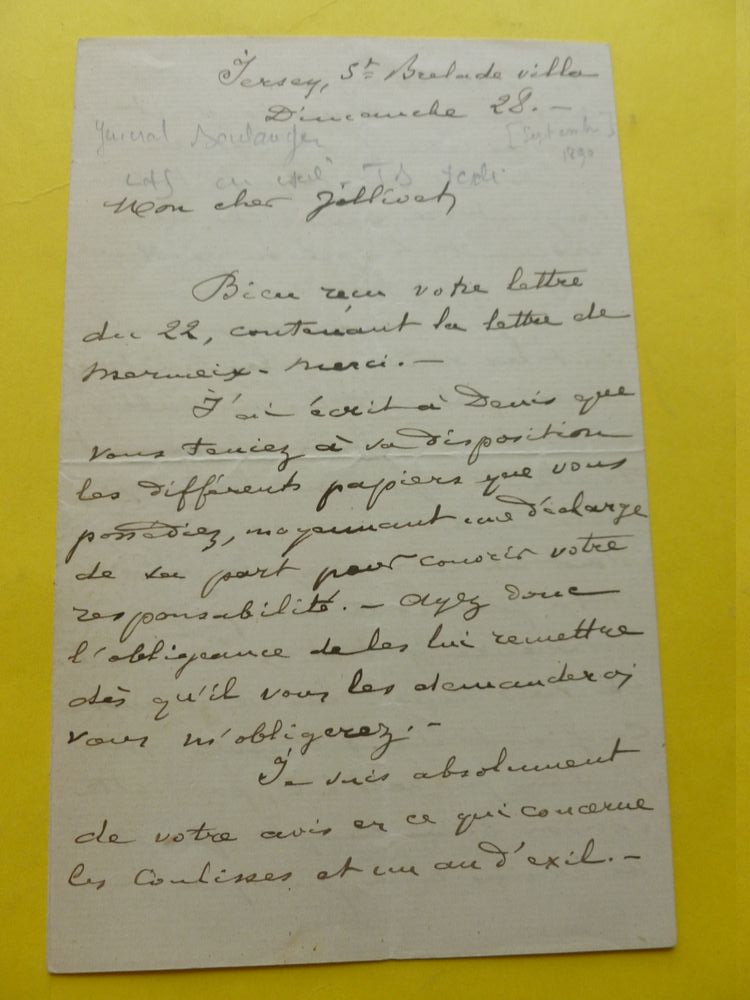 Jersey, St Brelade villa
Dimanche 28. —
General Boulanger [Septembre]
1890
LAS en exil
Mon cher Jollivet,
Bien reçu votre lettre
du 22, contenant la lettre de
Mermeix. Merci. —
J'ai écrit à Denis que
vous teniez à sa disposition
les différents papiers que vous
possédiez, moyennant une décharge
de sa part pour couvrir votre
responsabilité. — Ayez donc
l'obligeance de les lui remettre
dès qu'il vous les demandera;
vous m'obligerez. —
Je suis absolument
de votre avis en ce qui concerne
les Coulisses et un an d'exil. —